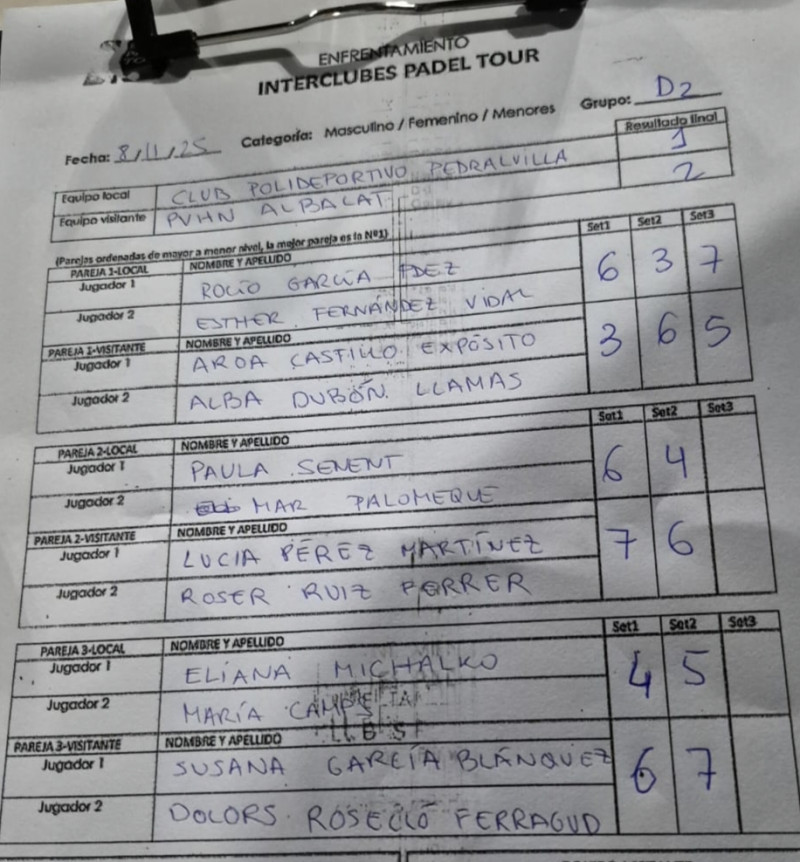 ENFRENTAMIENTO
INTERCLUBES PADEL TOUR
Fecha: 8/11/25 Categoría: Masculino / Femenino / Menores Grupo: D2
Resultado final
Equipo local CLUB POLIDEPORTIVO PEDRALVILLA 1
Equipo visitante PVHN ALBALAT 2
(Parejas ordenadas de mayor a menor nivel, la mejor pareja es la Nº1) Set1 Set2 Set3
PAREJA 1-LOCAL NOMBRE Y APELLIDO
Jugador 1 ROCÍO GARCÍA FDEZ 6 3 7
Jugador 2 ESTHER FERNÁNDEZ VIDAL
PAREJA 1-VISITANTE NOMBRE Y APELLIDO
Jugador 1 AROA CASTILLO EXPÓSITO 3 6 5
Jugador 2 ALBA DUBÓN LLAMAS
Set1 Set2 Set3
PAREJA 2-LOCAL NOMBRE Y APELLIDO
Jugador 1 PAULA SENENT 6 4
Jugador 2 MAR PALOMEQUE
PAREJA 2-VISITANTE NOMBRE Y APELLIDO
Jugador 1 LUCIA PÉREZ MARTÍNEZ 7 6
Jugador 2 ROSER RUIZ FERRER
Set1 Set2 Set3
PAREJA 3-LOCAL NOMBRE Y APELLIDO
Jugador 1 ELIANA MICHALKO 4 5
Jugador 2 MARÍA
PAREJA 3-VISITANTE NOMBRE Y APELLIDO
Jugador 1 SUSANA GARCÍA BLÁNQUEZ 6 7
Jugador 2 DOLORS ROSELLÓ FERRAGUD